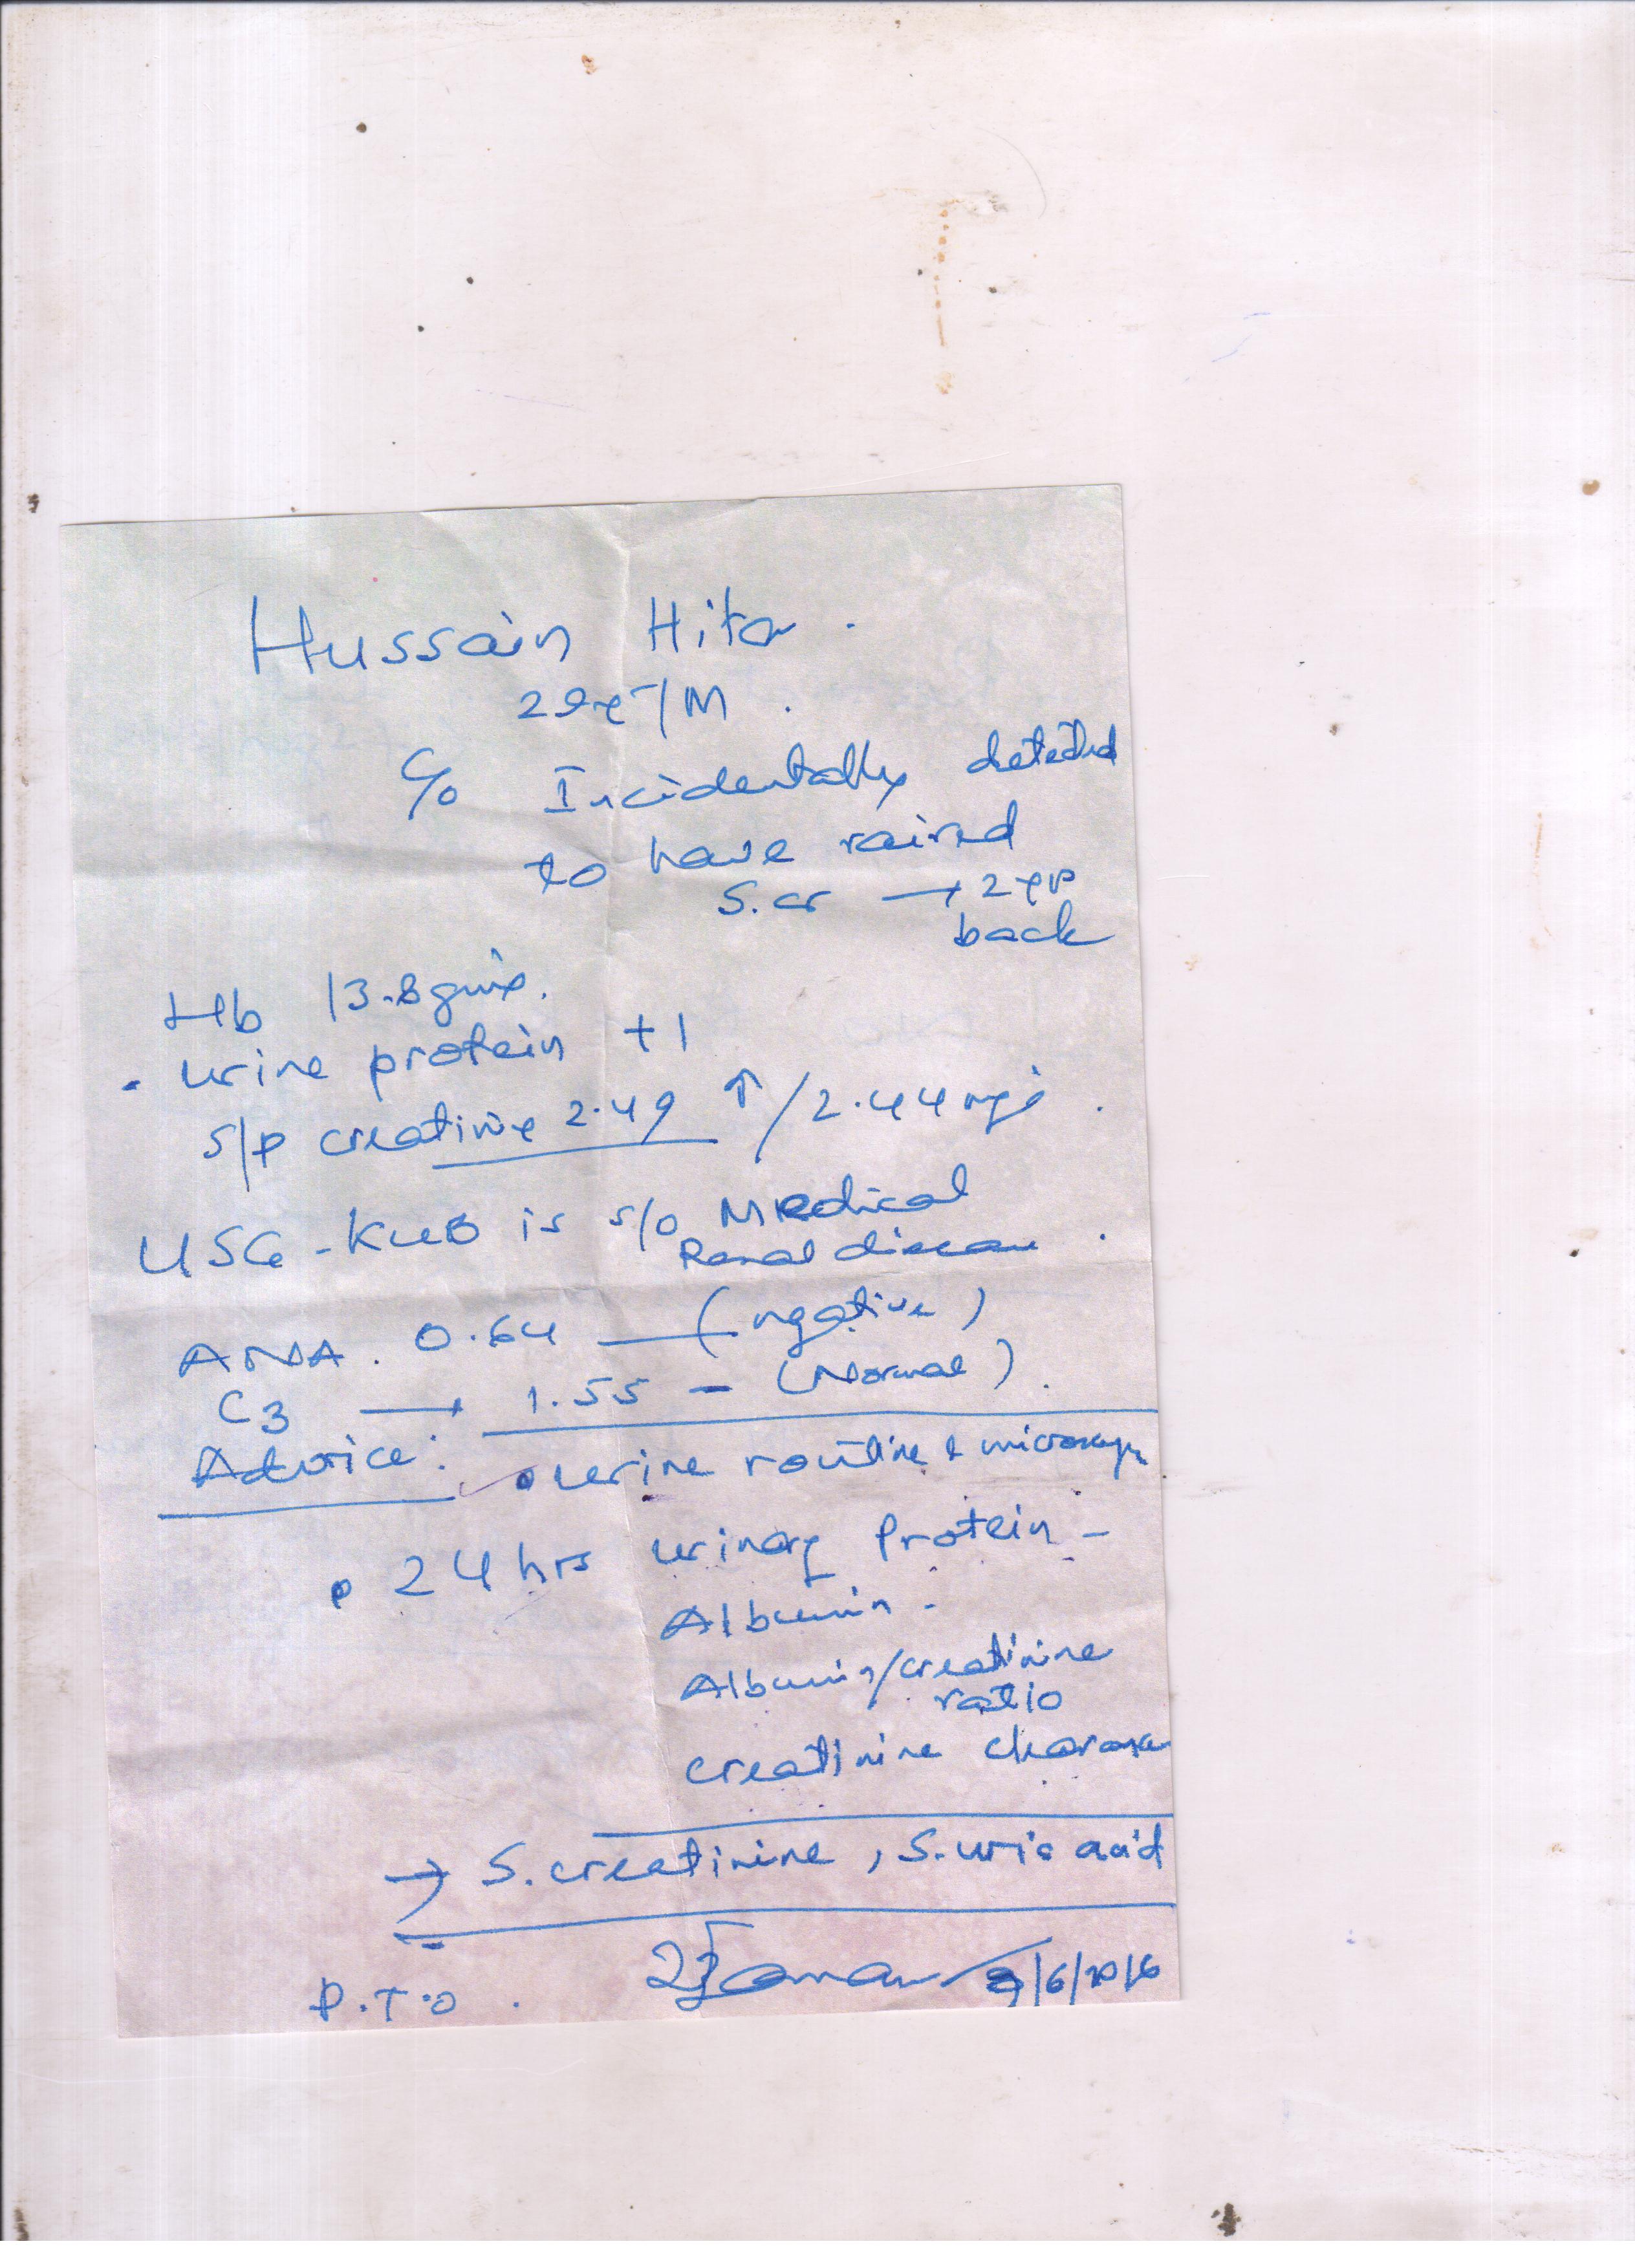 Hussain Hita.
29yr/M.
C/o Incidentally detected
to have raised
S.cr → 2 yr
back
Hb 13.8 gm%.
• Urine protein +1
S/P creatinine 2.49 ↑ / 2.44 mg%.
USG - KUB is s/o Medical
Renal disease.
ANA. 0.64 — (negative)
C3 → 1.55 - (Normal).
Advice: • Urine routine & microscopy
• 24 hrs urinary Protein -
Albumin -
Albumin/creatinine
ratio
creatinine clearance
→ S. creatinine, S. uric acid
P.T.O. 9/6/2016